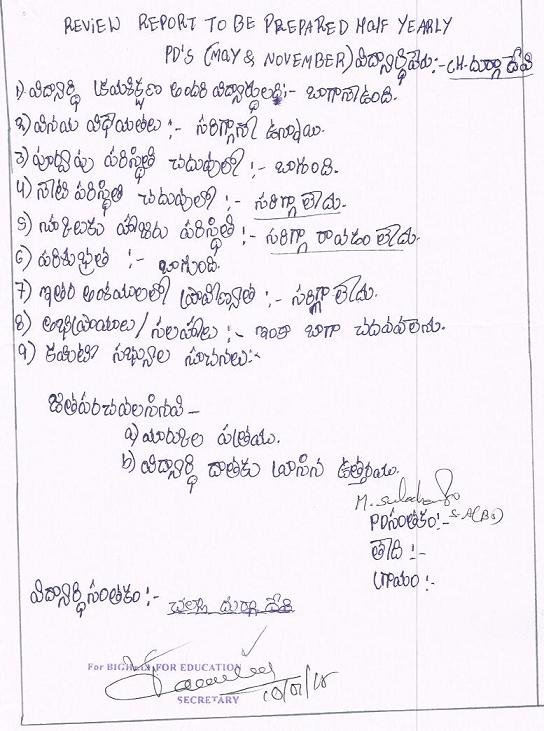 REVIEW REPORT TO BE PREPARED HALF YEARLY
PD'S (MAY & NOVEMBER) విద్యార్థి పేరు:- CH. దుర్గా దేవి
1) విద్యార్థి క్రమశిక్షణ ఇతర విద్యార్థులతో:- బాగానే ఉంది.
2) వినయ విధేయతలు :- సరిగ్గానే ఉన్నాయి.
3) పూర్వపు పరిస్థితి చదువులో :- బాగుంది.
4) నేటి పరిస్థితి చదువులో :- సరిగ్గా లేదు.
5) స్కూలుకు హాజరు పరిస్థితి :- సరిగ్గా రావడం లేదు.
6) పరిశుభ్రత :- బాగుంది.
7) ఇతర అంశములలో ప్రావీణ్యత :- సరిగ్గా లేదు.
8) అభిప్రాయాలు / సలహాలు :- ఇంకా బాగా చదవవలెను.
9) కమిటీ సభ్యుల సూచనలు:-
జతపరచవలసినవి -
a) మార్కుల పత్రము.
b) విద్యార్థి దాతకు వ్రాసిన ఉత్తరము.
PD సంతకం:- S.A(BS)
తేది :-
గ్రామం :-
విద్యార్థి సంతకం :- దుర్గా దేవి
For BIGHELP FOR EDUCATION
SECRETARY